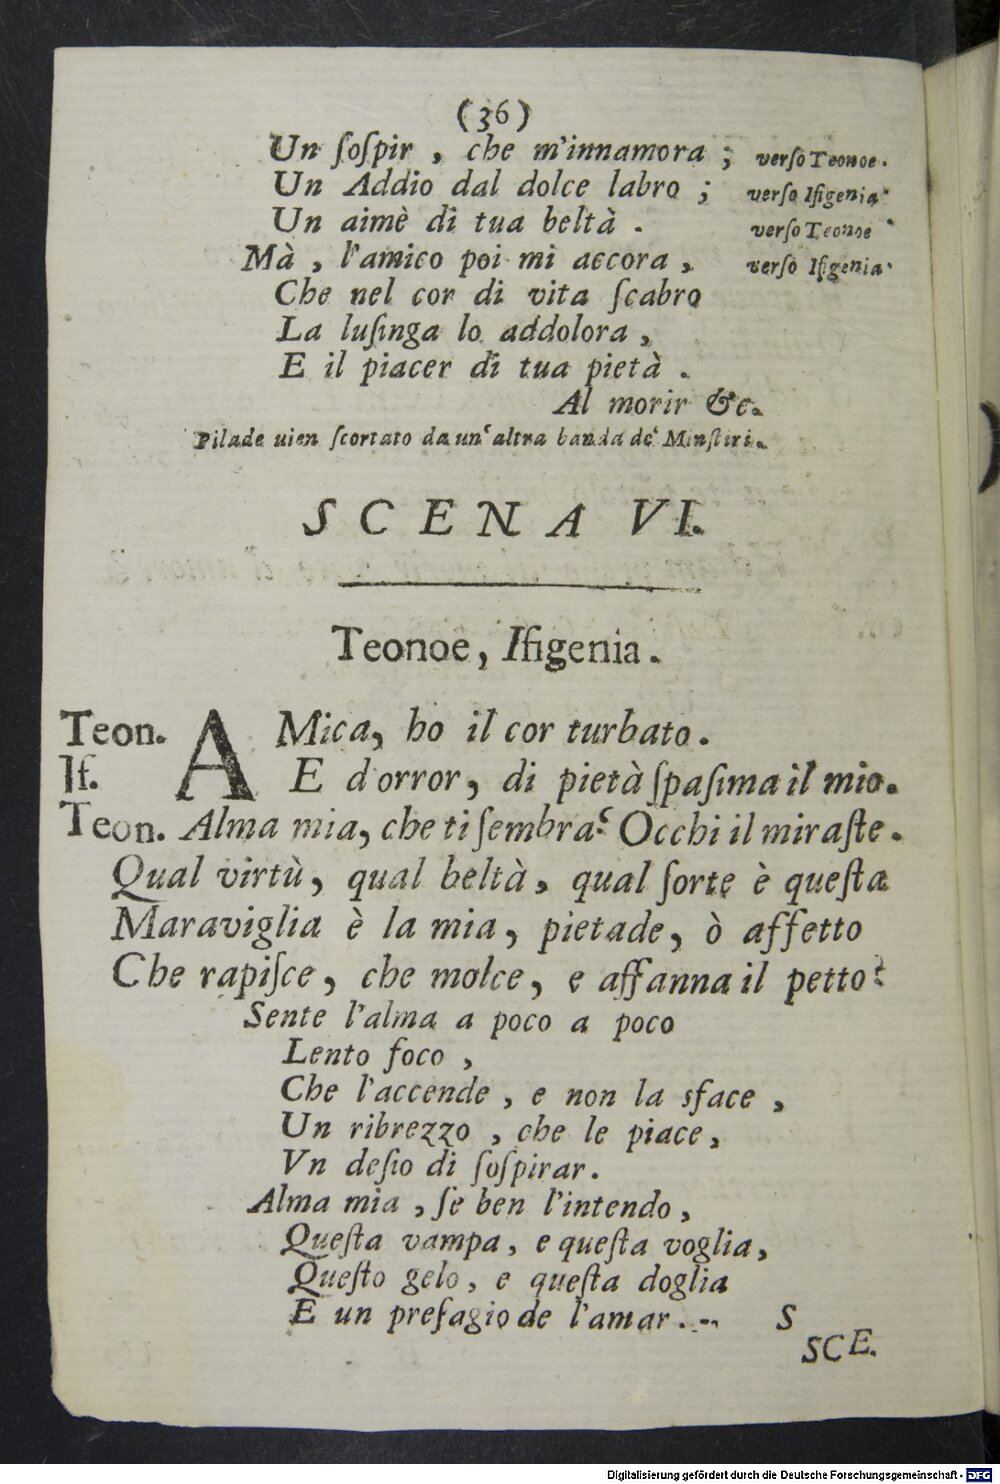 (36)
Un ſoſpir , che m'innamora ; verſo Teonoe.
Un Addio dal dolce labro ; verſo Ifigenia.
Un aimè di tua beltà . verſo Teonoe
Mà , l'amico poi mi accora , verſo Ifigenia.
Che nel cor di vita ſcabro
La luſinga lo addolora ,
E il piacer di tua pietà .
Al morir &c.
Pilade uien ſcortato da un' altra banda de' Minſtiri.
SCENA VI.
Teonoe, Ifigenia.
Teon. AMica, ho il cor turbato.
If. E d'orror, di pietà ſpaſima il mio.
Teon. Alma mia, che ti ſembra? Occhi il miraſte.
Qual virtù, qual beltà, qual ſorte è queſta
Maraviglia è la mia, pietade, ò affetto
Che rapiſce, che molce, e affanna il petto?
Sente l'alma a poco a poco
Lento foco ,
Che l'accende , e non la sface ,
Un ribrezzo , che le piace,
Vn deſio di ſoſpirar.
Alma mia , ſe ben l'intendo,
Queſta vampa, e queſta voglia,
Queſto gelo, e queſta doglia
E un preſagio de l'amar. S
SCE.
Digitalisierung gefördert durch die Deutsche Forschungsgemeinschaft - DFG